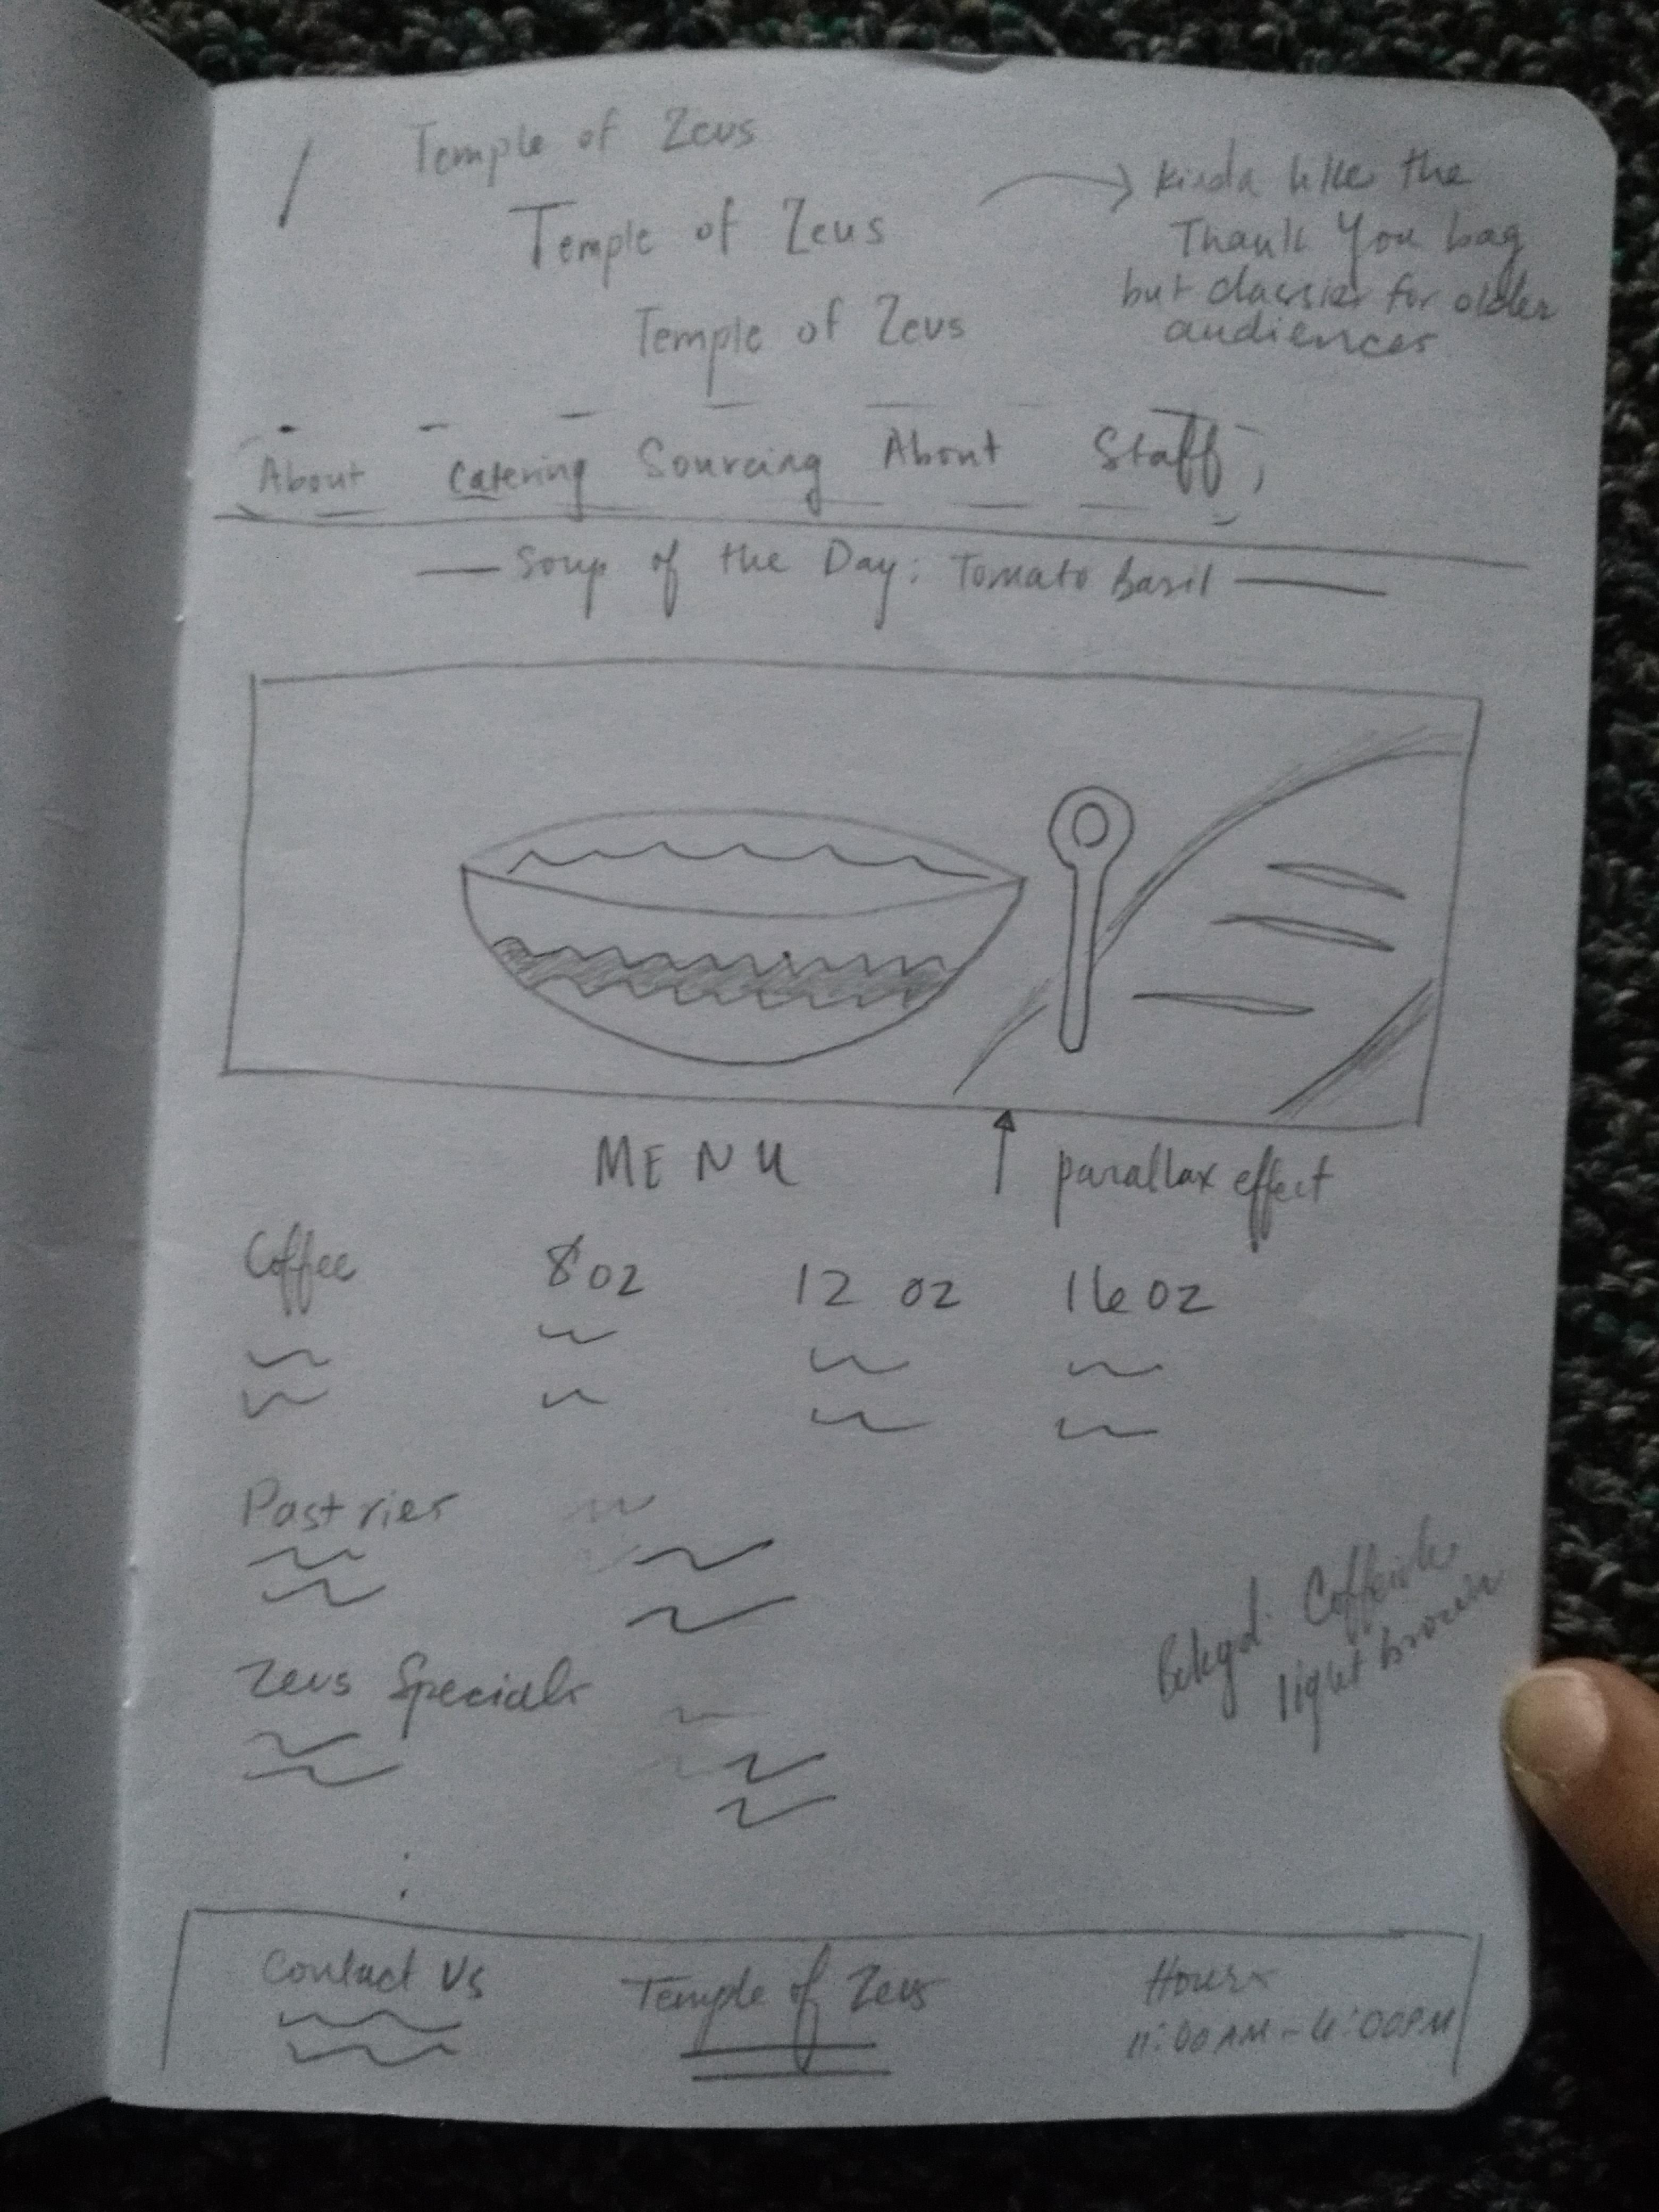 Temple of Zeus
Temple of Zeus
Temple of Zeus
kinda like the
Thank You bag
but classier for older
audiences
About Catering Sourcing About Staff
Soup of the Day: Tomato Basil
MENU
parallax effect
Coffee 8 oz 12 oz 16 oz
Pastries
Zeus Specials
light brown
Contact Us
Temple of Zeus
Hours
11:00 AM -